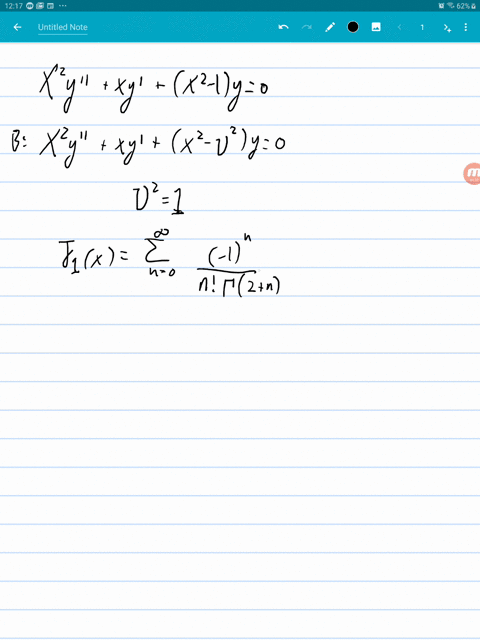 12:17 62%
Untitled Note 1
x²y'' + xy' + (x²-1)y=0
B: x²y'' + xy' + (x²-υ²)y=0
υ²=1
J₁(x) = ∑_{n=0}^{∞} (-1)ⁿ / n! Γ(2+n)